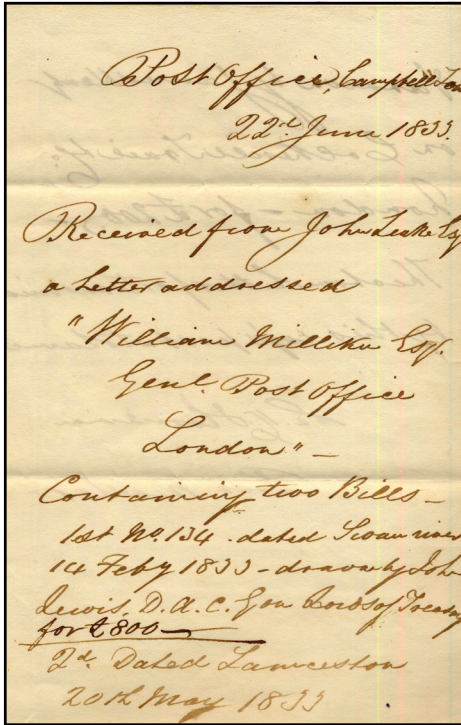 Post Office, Campbell Ton
22d. June 1833.
Received from John Leake Esq
a Letter addressed
"William Milliken Esq.
Genl. Post Office
London" –
Containing two Bills –
1st No. 134. dated Swan river
14 Feby 1833 – drawn by John
Lewis, D. A. C. Gen Lords of Treasury
for £800 –
2d. Dated Launceston
20th May 1833